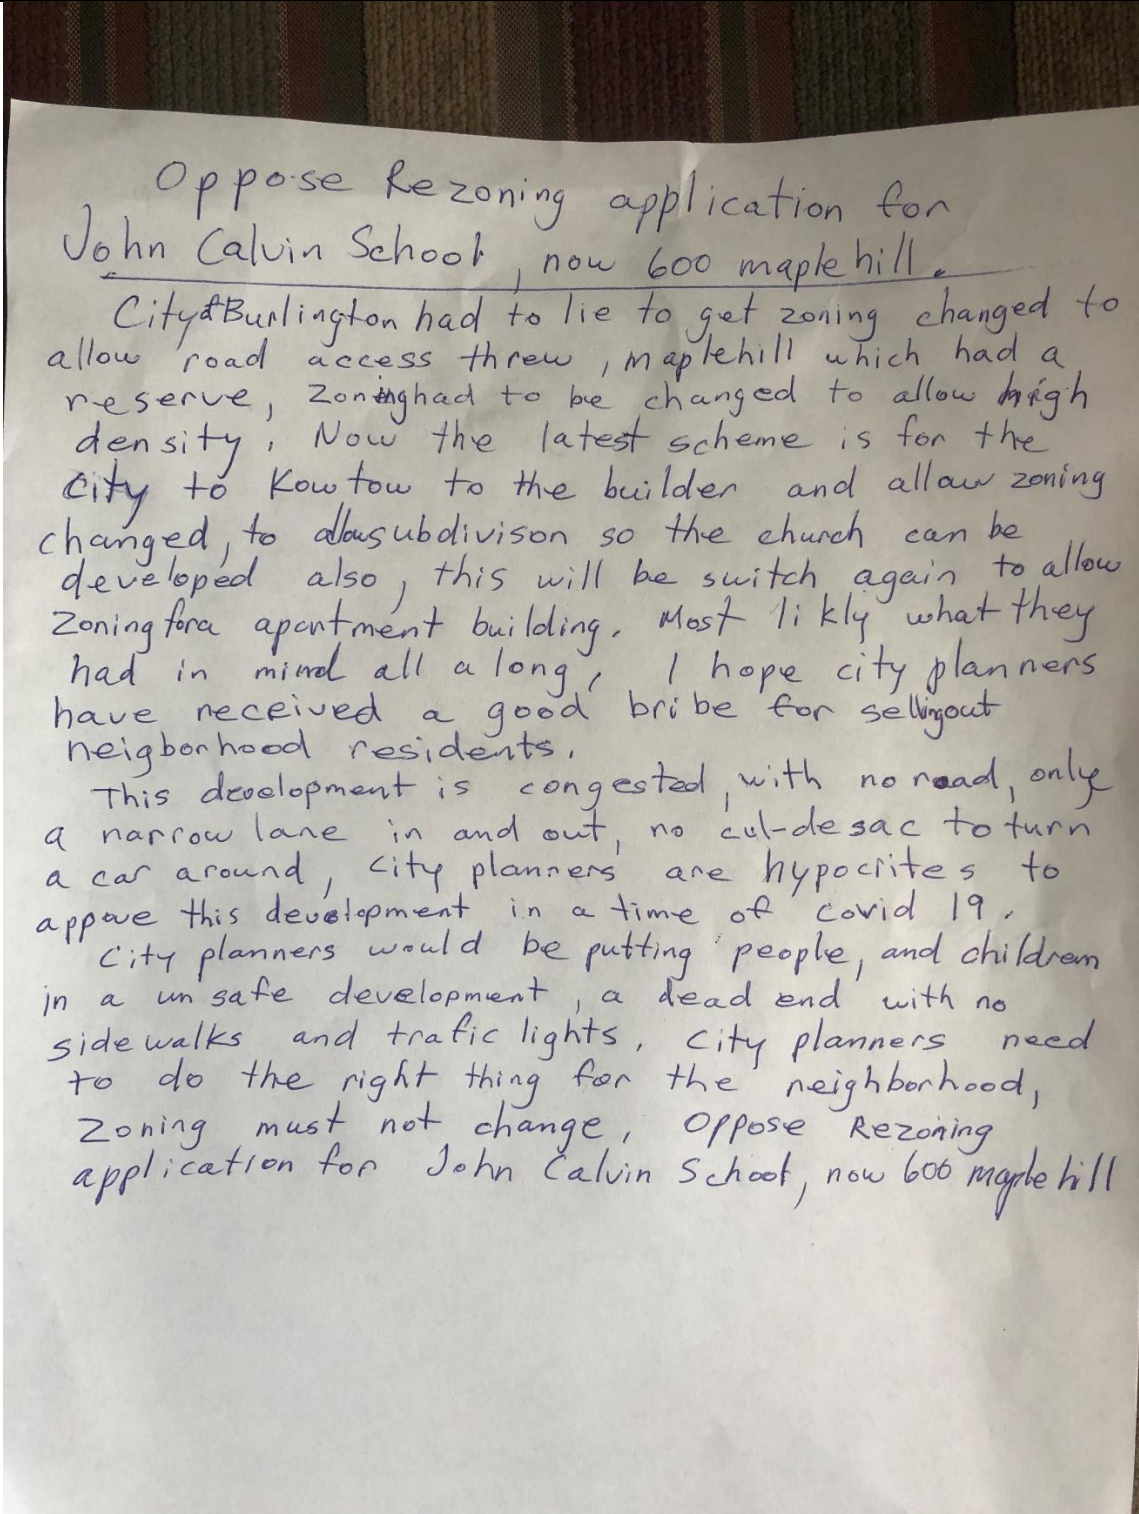 Oppose Rezoning application for
John Calvin School, now 600 maple hill.
City of Burlington had to lie to get zoning changed to
allow road access threw, maplehill which had a
reserve, Zoning had to be changed to allow high
density. Now the latest scheme is for the
City to Kowtow to the builder and allow zoning
changed, to allow subdivison so the church can be
developed also, this will be switch again to allow
Zoning for a apartment building. Most likly what they
had in mind all a long, I hope city planners
have received a good bribe for selling out
neigborhood residents.
This development is congested, with no road, only
a narrow lane in and out, no cul-de sac to turn
a car around, City planners are hypocrites to
appove this development in a time of covid 19.
City planners would be putting people, and children
in a un safe development, a dead end with no
side walks and trafic lights. City planners need
to do the right thing for the neighborhood,
Zoning must not change, Oppose Rezoning
application for John Calvin School, now 600 maple hill